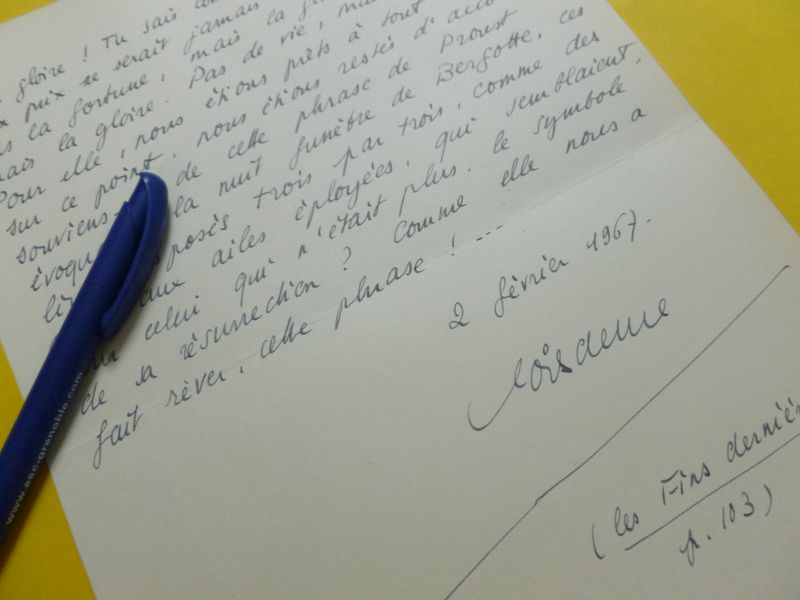 gloire ! Tu sais
prix ne serait jamais
la fortune, mais la
mais la gloire. Pas de vie,
Pour elle, nous étions prêts à tout
sur ce point, nous étions restés d'acco
souviens de cette phrase de Proust
évoqu la nuit funèbre de Bergotte, ces
li sposés trois par trois, comme des
aux ailes éployées, qui semblaient,
celui qui n'était plus, le symbole
de sa résurrection ? Comme elle nous a
fait rêver, cette phrase ! ...
2 février 1967.
(les Fins derniè
p. 103)
www.esc-grenoble.com